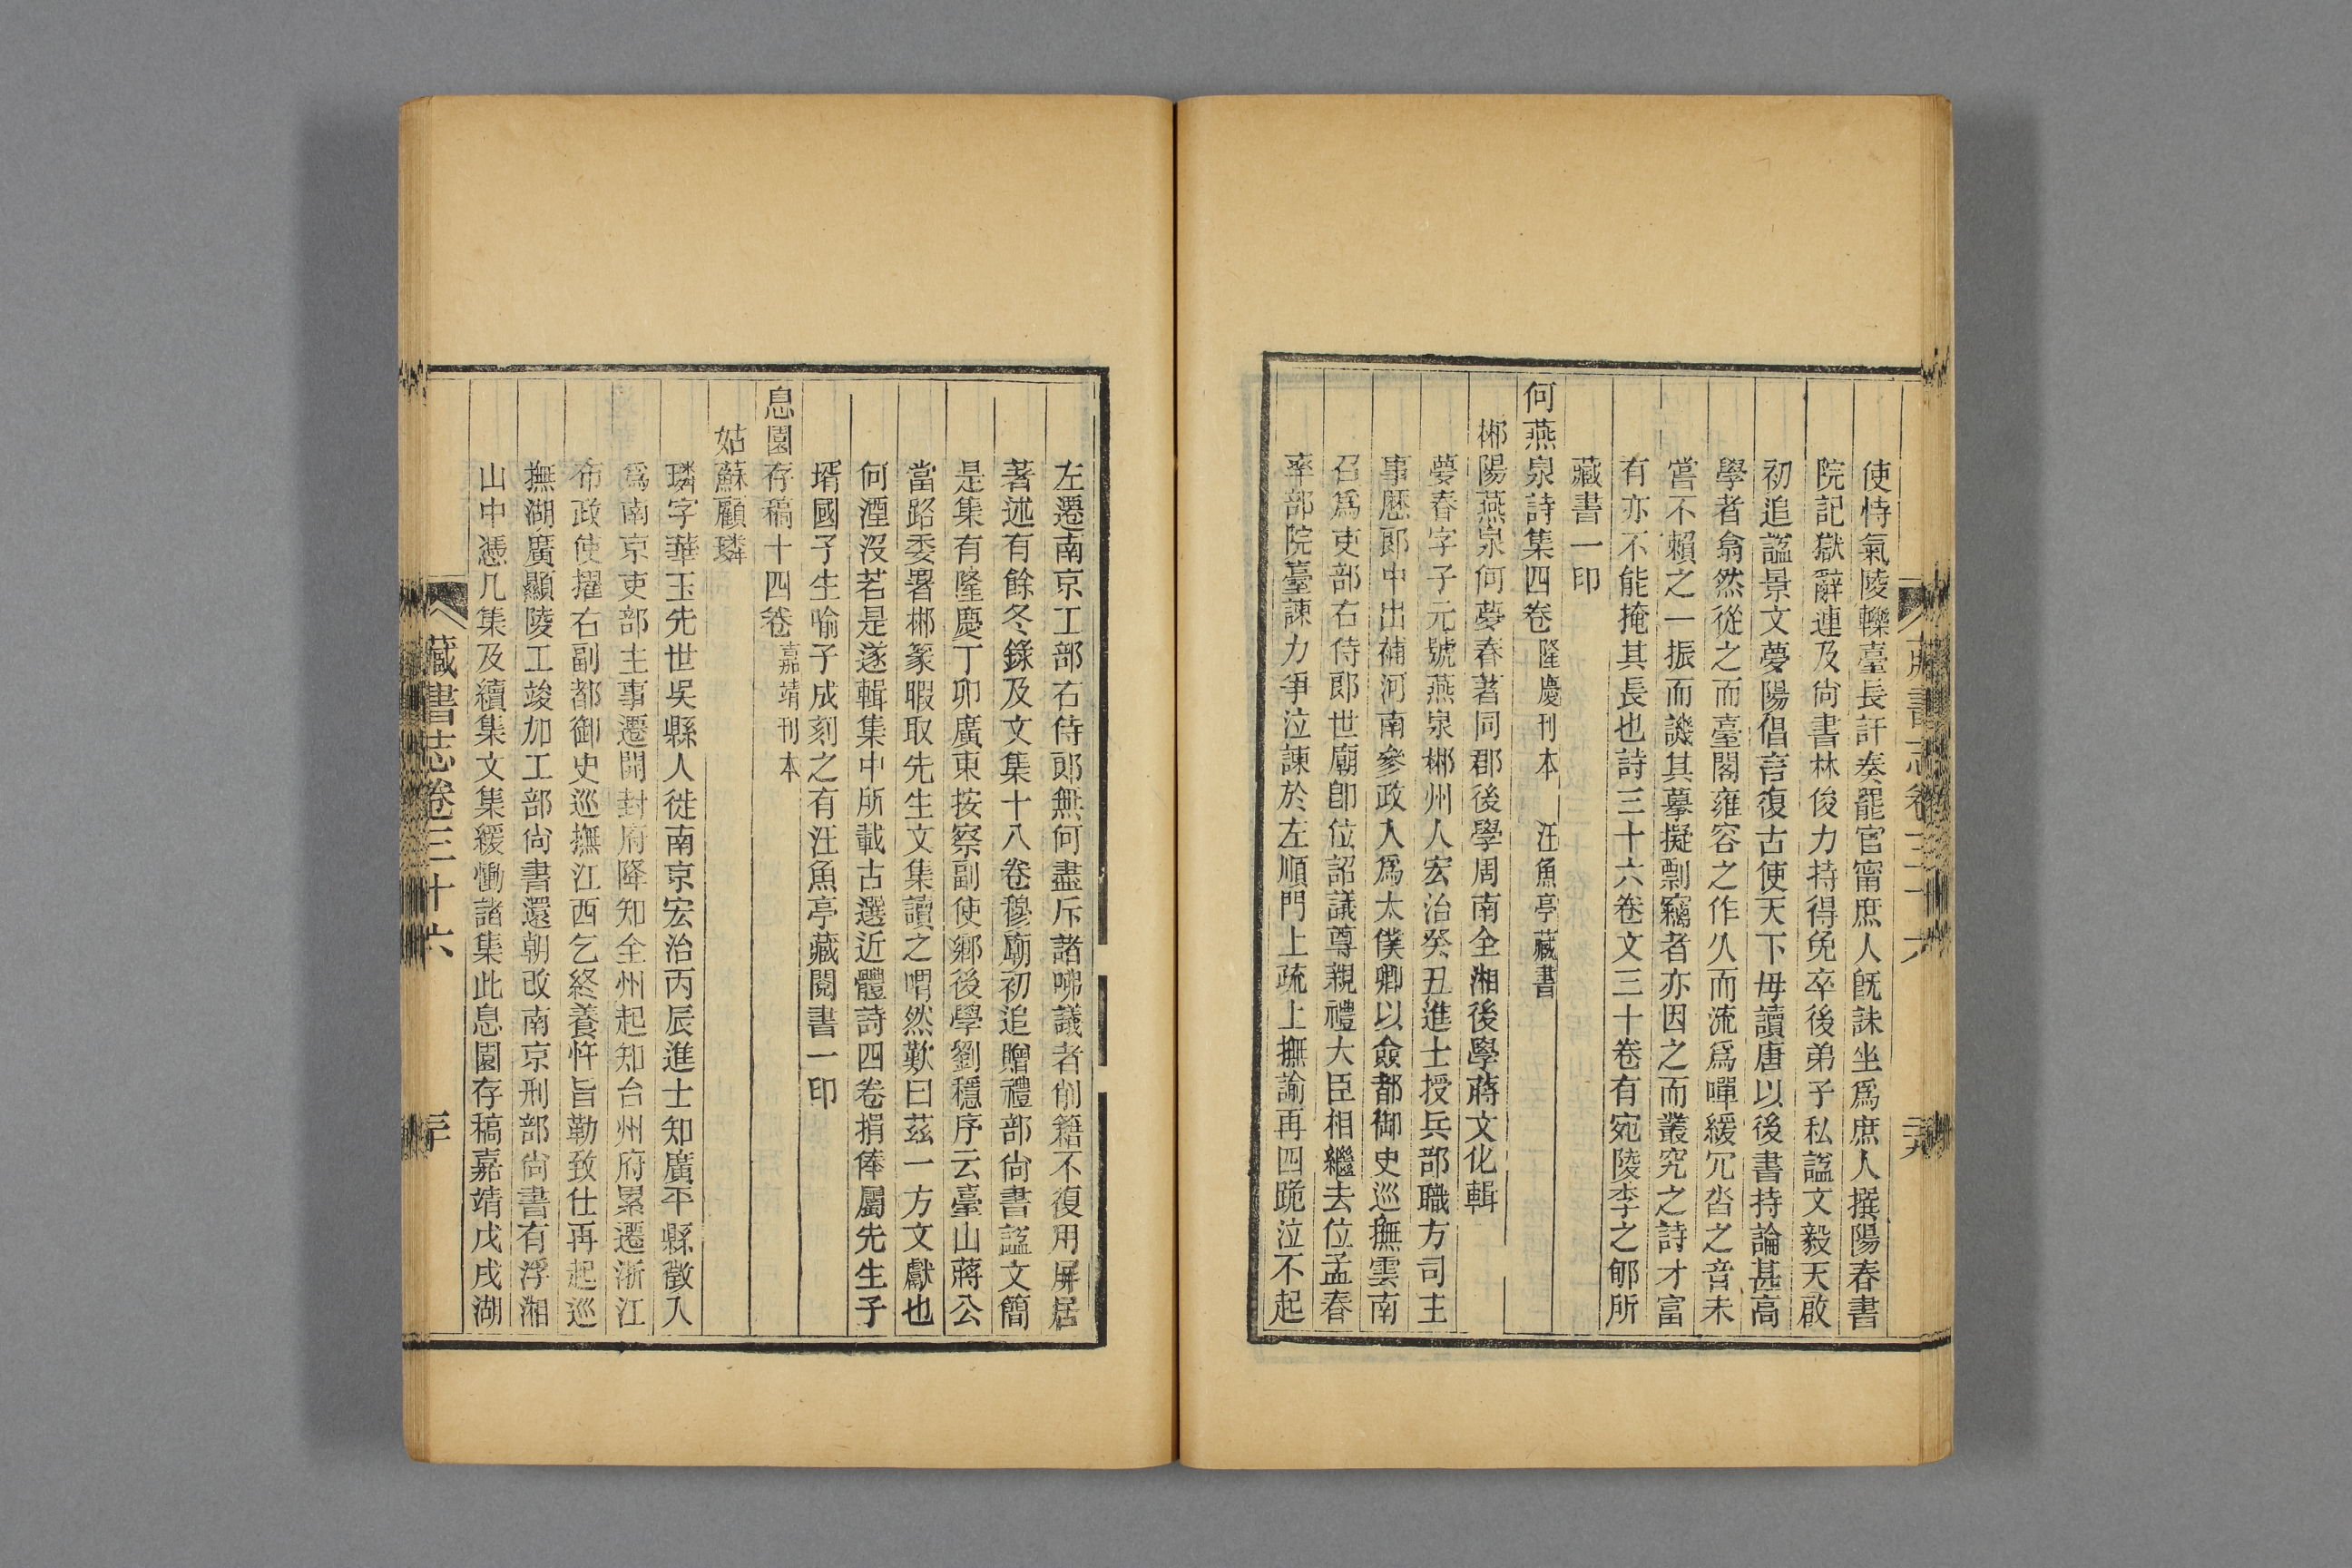 使恃氣陵轢臺長訐奏罷官甯庶人旣誅坐爲庶人撰陽春書
院記獄辭連及尙書林俊力持得免卒後弟子私諡文毅天啟
初追諡景文夢陽倡言復古使天下毋讀唐以後書持論甚高
學者翕然從之而臺閣雍容之作久而流爲嘽緩冗沓之音未
嘗不賴之一振而譏其摹擬剽竊者亦因之而叢究之詩才富
有亦不能掩其長也詩三十六卷文三十卷有宛陵李之郇所
藏書一印
何燕泉詩集四卷 隆慶刊本 汪魚亭藏書
郴陽燕泉何夢春著同郡後學周南全湘後學蔣文化輯
夢春字子元號燕泉郴州人宏治癸丑進士授兵部職方司主
事歷郎中出補河南參政入爲太僕卿以僉都御史巡撫雲南
召爲吏部右侍郎世廟卽位詔議尊親禮大臣相繼去位孟春
率部院臺諫力爭泣諫於左順門上疏上撫諭再四跪泣不起
左遷南京工部右侍郎無何盡斥諸咈議者削籍不復用屏居
著述有餘冬錄及文集十八卷穆廟初追贈禮部尙書諡文簡
是集有隆慶丁卯廣東按察副使鄉後學劉穩序云臺山蔣公
當路委署郴篆暇取先生文集讀之喟然歎曰茲一方文獻也
何湮沒若是遂輯集中所載古選近體詩四卷捐俸屬先生子
壻國子生喻子成刻之有汪魚亭藏閱書一印
息園存稿十四卷 嘉靖刊本
姑蘇顧璘
璘字華玉先世吳縣人徙南京宏治丙辰進士知廣平縣徵入
爲南京吏部主事遷開封府降知全州起知台州府累遷浙江
布政使擢右副都御史巡撫江西乞終養忤旨勒致仕再起巡
撫湖廣顯陵工竣加工部尙書還朝改南京刑部尙書有浮湘
山中憑几集及續集文集緩慟諸集此息園存稿嘉靖戊戌湖
藏書志卷三十六